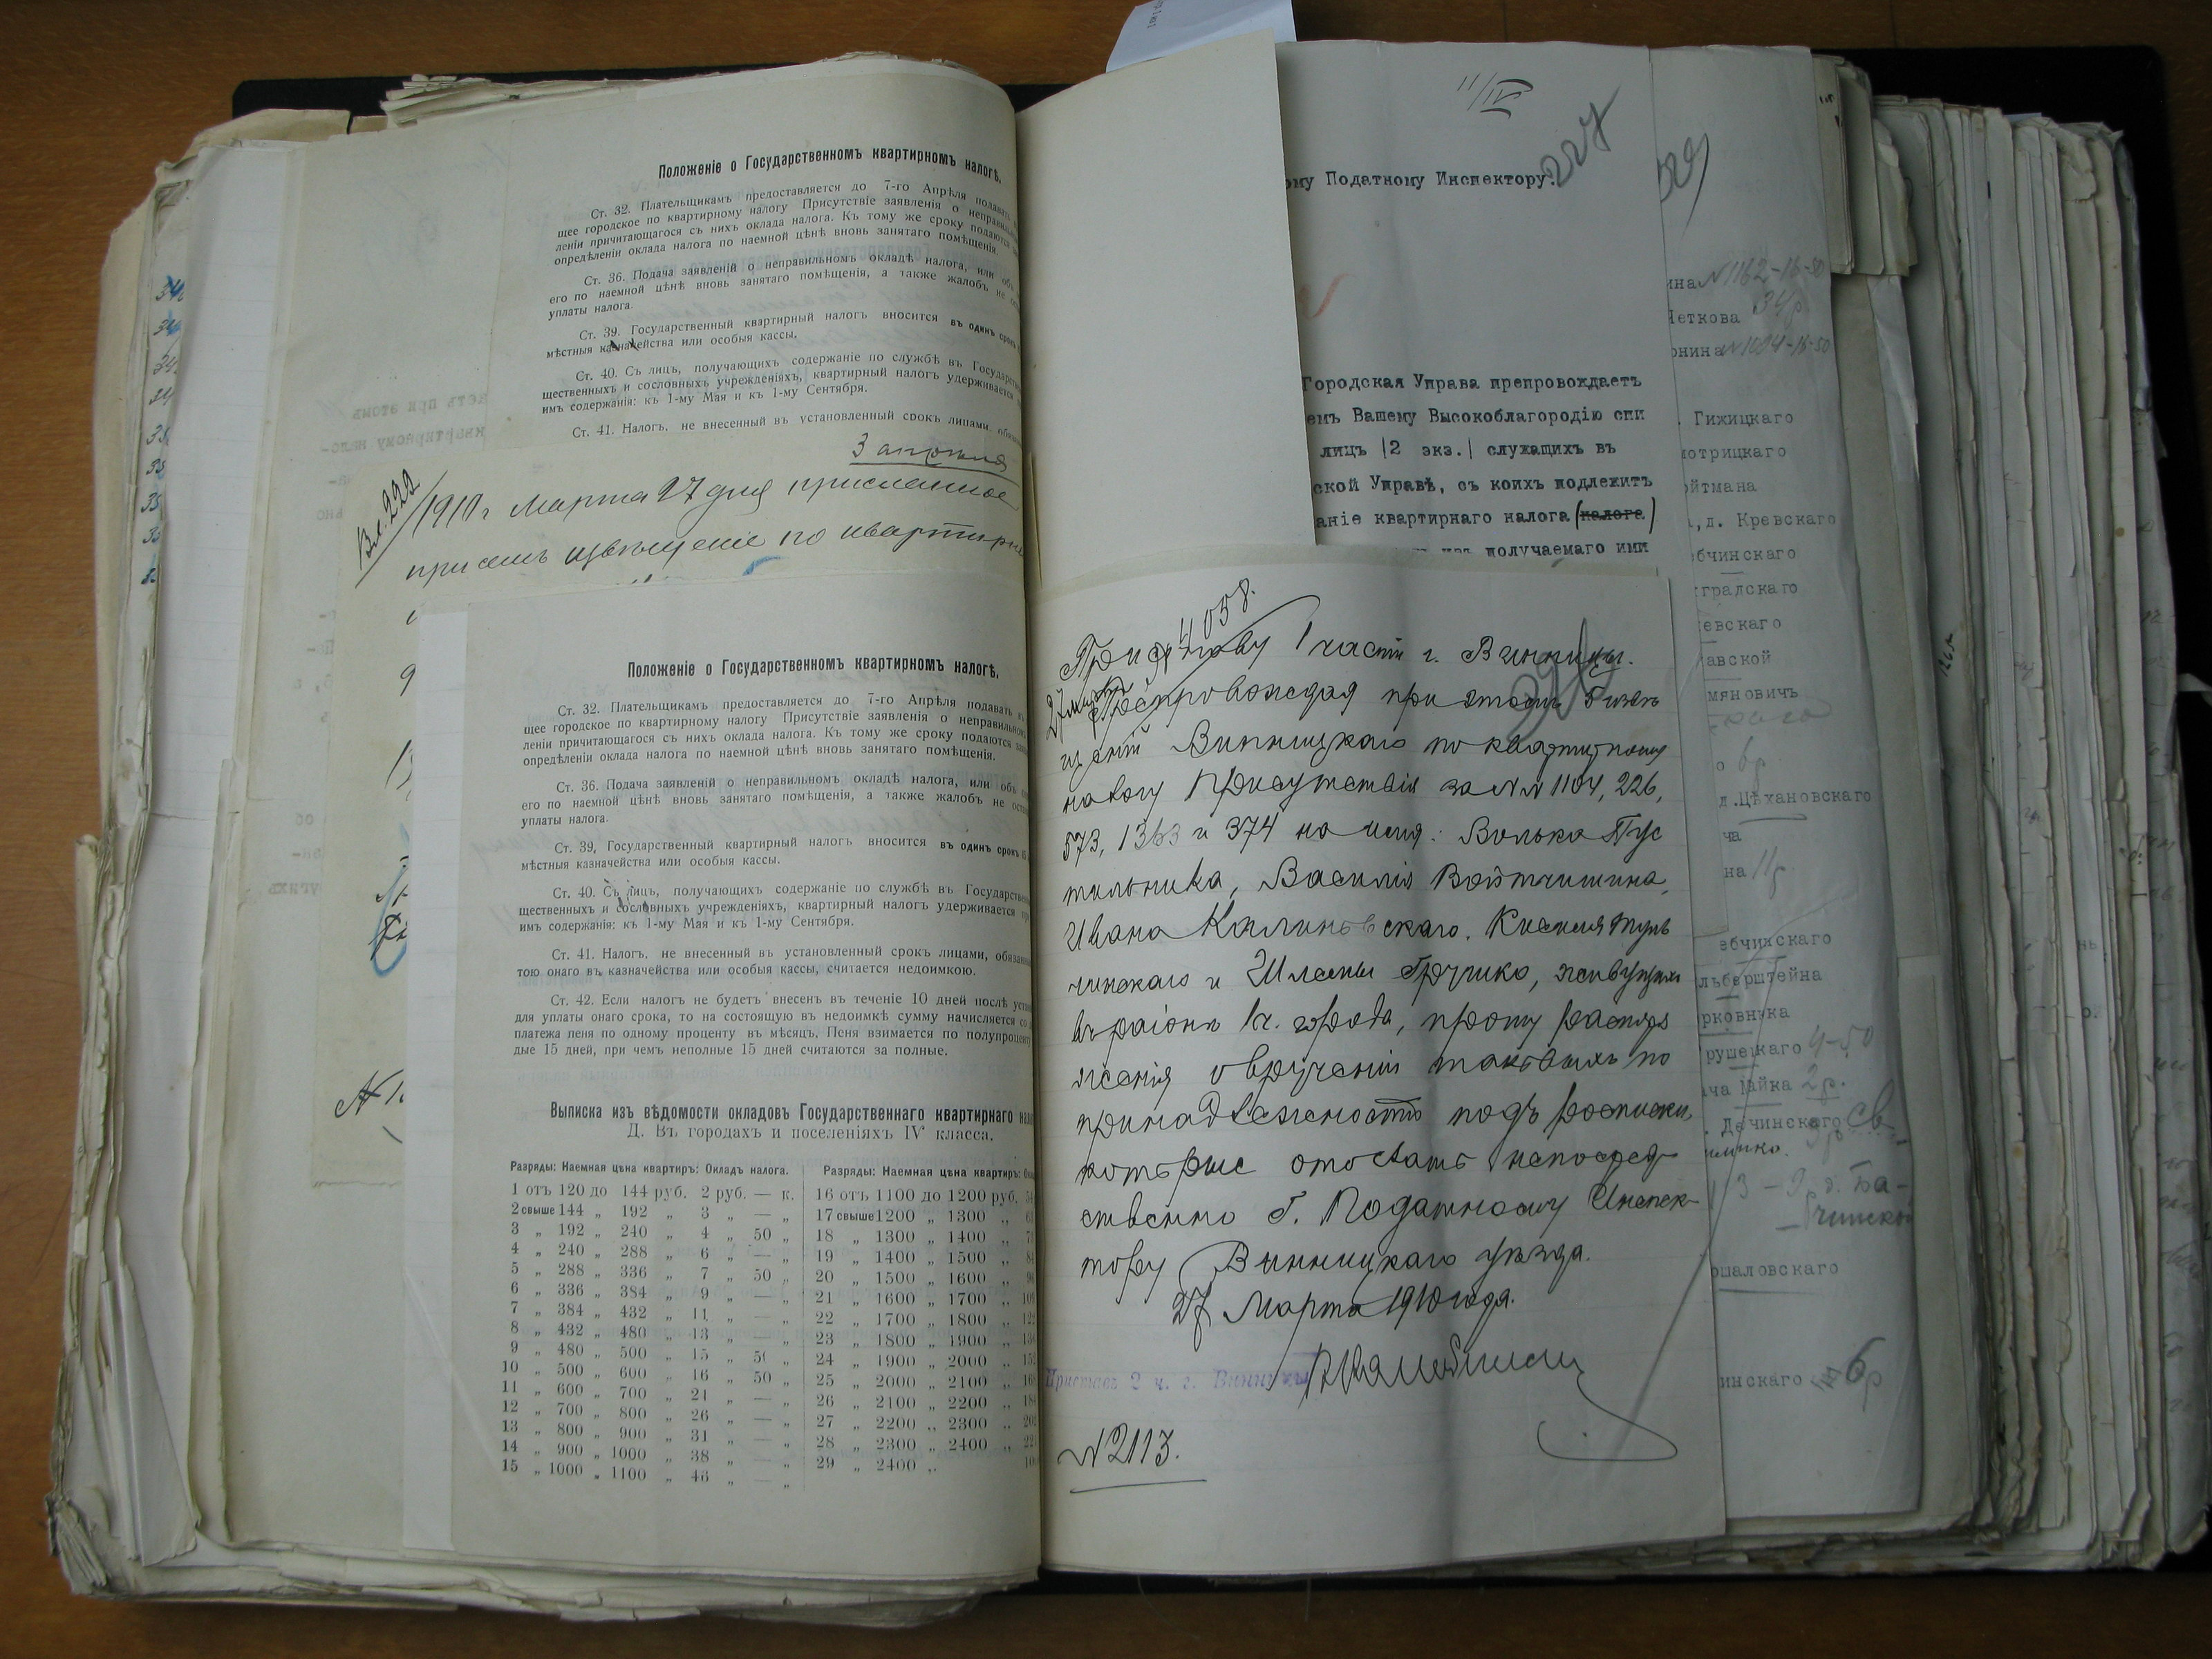 Положеніе о Государственномъ квартирномъ налогѣ.
Ст. 32. Плательщикамъ предоставляется до 7-го Апрѣля подавать
щее городское по квартирному налогу Присутствіе заявленія о неправиль
леніи причитающагося съ нихъ оклада налога. Къ тому же сроку подаются
опредѣленіи оклада налога по наемной цѣнѣ вновь занятаго помѣщенія.
Ст. 36. Подача заявленій о неправильномъ окладѣ налога, или объ
его по наемной цѣнѣ вновь занятаго помѣщенія, а также жалобъ не
уплаты налога.
Ст. 39. Государственный квартирный налогъ вносится въ одинъ срокъ
мѣстныя казначейства или особыя кассы.
Ст. 40. Съ лицъ, получающихъ содержаніе по службѣ въ Государств
щественныхъ и сословныхъ учрежденіяхъ, квартирный налогъ удерживается
имъ содержанія: къ 1-му Мая и къ 1-му Сентября.
Ст. 41. Налогъ, не внесенный въ установленный срокъ лицами, обяза
3 апреля
Вх. 222
1910 г Марта 27 дня
извѣщеніе по квартирн
Положеніе о Государственномъ квартирномъ налогѣ.
Ст. 32. Плательщикамъ предоставляется до 7-го Апрѣля подавать
щее городское по квартирному налогу Присутствіе заявленія о неправильном
леніи причитающагося съ нихъ оклада налога. Къ тому же сроку подаются
опредѣленіи оклада налога по наемной цѣнѣ вновь занятаго помѣщенія.
Ст. 36. Подача заявленій о неправильномъ окладѣ налога, или объ
его по наемной цѣнѣ вновь занятаго помѣщенія, а также жалобъ не ост
уплаты налога.
Ст. 39, Государственный квартирный налогъ вносится въ одинъ срокъ
мѣстныя казначейства или особыя кассы.
Ст. 40. Съ лицъ, получающихъ содержаніе по службѣ въ Государстве
щественныхъ и сословныхъ учрежденіяхъ, квартирный налогъ удерживается
имъ содержанія: къ 1-му Мая и къ 1-му Сентября.
Ст. 41. Налогъ, не внесенный въ установленный срокъ лицами, обязан
тою онаго въ казначейства или особыя кассы, считается недоимкою.
Ст. 42. Если налогъ не будетъ внесенъ въ теченіе 10 дней послѣ уст
для уплаты онаго срока, то на состоящую въ недоимкѣ сумму начисляется со
платежа пеня по одному проценту въ мѣсяцъ. Пеня взимается по полупроцен
дые 15 дней, при чемъ неполные 15 дней считаются за полные.
Выписка изъ вѣдомости окладовъ Государственнаго квартирнаго нал
Д. Въ городахъ и поселеніяхъ IV класса.
Разряды: Наемная цѣна квартиръ: Окладъ налога. Разряды: Наемная цѣна квартиръ:
1 отъ 120 до 144 руб. 2 руб. — к. 16 отъ 1100 до 1200 руб.
2 свыше 144 „ 192 „ 3 „ — „ 17 свыше 1200 „ 1300 „
3 „ 192 „ 240 „ 4 „ 50 „ 18 „ 1300 „ 1400 „
4 „ 240 „ 288 „ 6 „ — „ 19 „ 1400 „ 1500 „
5 „ 288 „ 336 „ 7 „ 50 „ 20 „ 1500 „ 1600 „
6 „ 336 „ 384 „ 9 „ — „ 21 „ 1600 „ 1700 „
7 „ 384 „ 432 „ 11 „ — „ 22 „ 1700 „ 1800 „
8 „ 432 „ 480 „ 13 „ — „ 23 „ 1800 „ 1900 „
9 „ 480 „ 500 „ 15 „ 50 „ 24 „ 1900 „ 2000 „
10 „ 500 „ 600 „ 16 „ 50 „ 25 „ 2000 „ 2100 „
11 „ 600 „ 700 „ 21 „ — „ 26 „ 2100 „ 2200 „
12 „ 700 „ 800 „ 26 „ — „ 27 „ 2200 „ 2300 „
13 „ 800 „ 900 „ 31 „ — „ 28 „ 2300 „ 2400 „
14 „ 900 „ 1000 „ 38 „ — „ 29 „ 2400 „
15 „ 1000 „ 1100 „ 46 „ — „
11/IV
227
ому Податному Инспектору.
Городская Управа препровождаетъ
емъ Вашему Высокоблагородію спи
лицъ |2 экз.| служащихъ въ
ской Управѣ, съ коихъ подлежитъ
аніе квартирнаго налога (налога)
изъ получаемаго ими
№ 4058.
27 марта
Приставу 1 части г. Винницы.
Препровождая при этомъ 5 извѣ
щеній Винницкаго по квартирному
налогу Присутствія за №№ 1104, 226,
573, 1363 и 374 на имя: Волька Пус
тильника, Василія Войтчишина,
Ивана Калиновскаго, Киселя Туль
чинскаго и Шлемы Гручко, живущихъ
въ раіонѣ 1 ч. города, прошу распоря
женія о врученіи таковыхъ по
принадлежности подъ росписки,
которые отослать непосред
ственно Г. Податному Инспек
тору Винницкаго уѣзда.
27 Марта 1910 года.
Приставъ 2 ч. г. Винницы
№ 2113.
ина № 1162-16-50
Четкова 34 р
онина № 1094-16-50
. Гижицкаго
мотрицкаго
ойтмана
,д. Кревскаго
бчинскаго
градскаго
евскаго
авской
мяновичъ
о 6 р
д.Цѣхановскаго
ча
на 11 р.
ебчинскаго
льберштейна
рковника
рушецкаго 4-50
ча Майка 2 р.
. Дачинскаго
3 - 9 р д. Ба-
чинско
ршаловскаго
инскаго 6 р